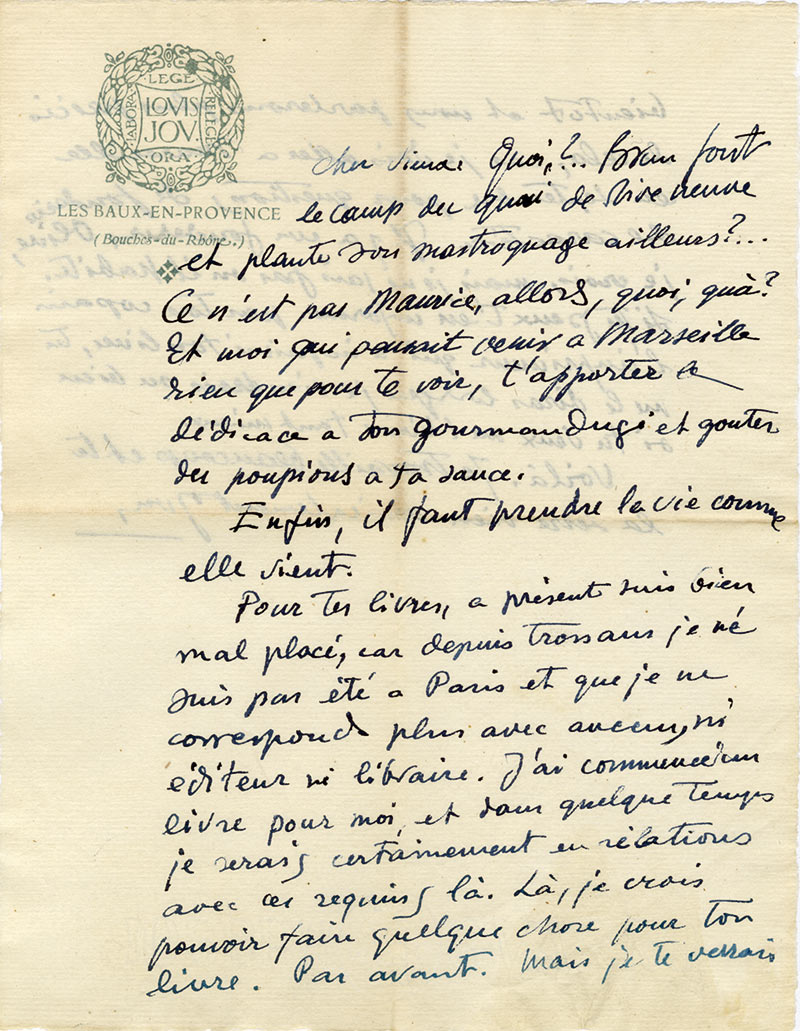 LEGE
LABORA
LOVIS
JOV.
RELEGE
ORA
LES BAUX-EN-PROVENCE
(Bouches-du-Rhône.)
Cher Quoi,?... fout
le camp du quai de Rive neuve
et plante son mastroquage ailleurs?...
Ce n'est pas Maurice, allors, quoi, quà?
Et moi qui pensait venir a Marseille
rien que pour te voir, t'apporter la
dédicace a ton et gouter
des poupions a ta sauce.
Enfin, il faut prendre la vie comme
elle vient.
Pour tes livres, a présent suis bien
mal placé, car depuis trossans je ne
suis pas été a Paris et que je ne
correspond plus avec aucun, ni
éditeur ni libraire. J'ai commencé un
livre pour moi, et dans quelque temps
je serais certainement en rélations
avec ces requins là. Là, je crois
pouvoir faire quelque chose pour ton
livre. Pas avant. Mais je te verrais